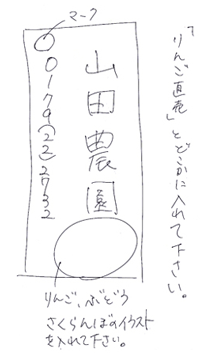 「りんご直売」とどこかに入れて下さい。
マーク
山田農園
0179(22)2732
りんご、ぶどう
さくらんぼのイラスト
を入れて下さい。